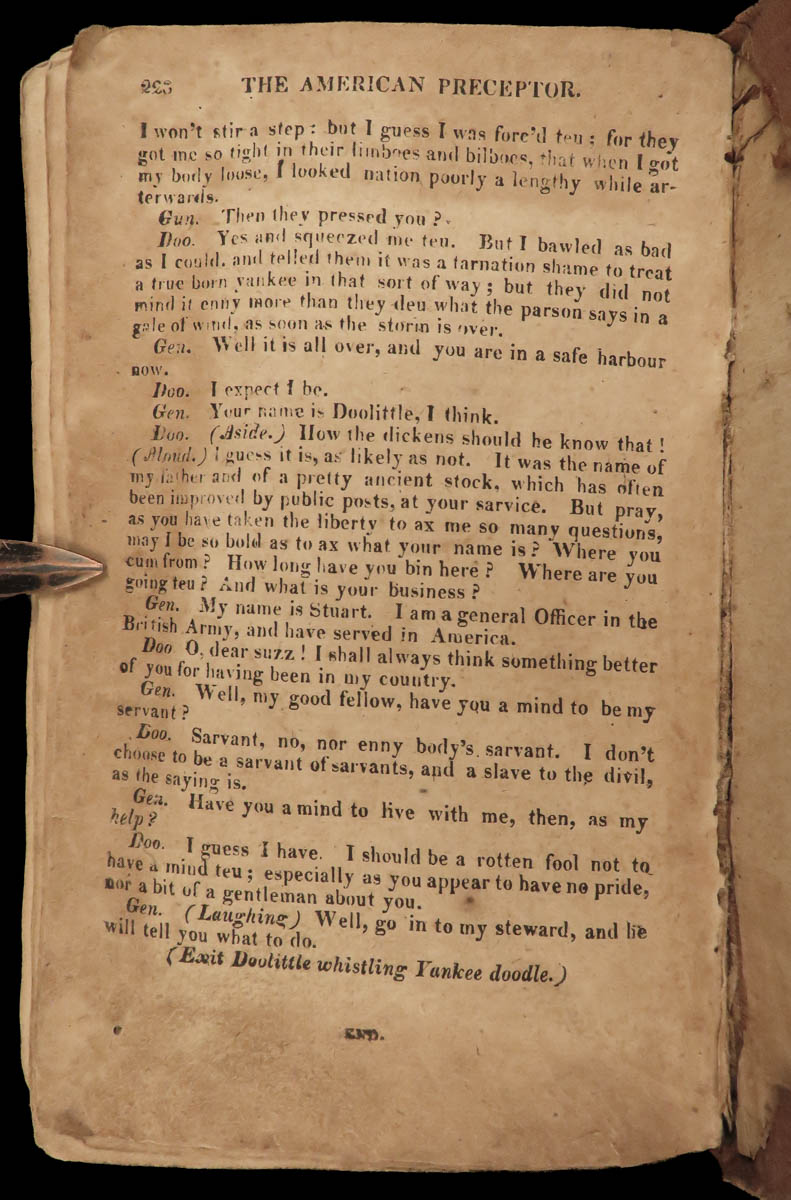 228 THE AMERICAN PRECEPTOR.
I won't stir a step: but I guess I was forc'd teu; for they
got me so tight in their limboes and bilboes, that when I got
my body loose, I looked nation poorly a lengthy while af-
terwards.
Gen. Then they pressed you?
Doo. Yes and squeezed me teu. But I bawled as bad
as I could. and telled them it was a tarnation shame to treat
a true born yankee in that sort of way; but they did not
mind it enny more than they deu what the parson says in a
gale of wind, as soon as the storm is over.
Gen. Well it is all over, and you are in a safe harbour
now.
Doo. I expect I be.
Gen. Your name is Doolittle, I think.
Doo. (Aside.) How the dickens should he know that!
(Aloud.) I guess it is, as likely as not. It was the name of
my father and of a pretty ancient stock, which has often
been improved by public posts, at your sarvice. But pray,
as you have taken the liberty to ax me so many questions,
may I be so bold as to ax what your name is? Where you
cum from? How long have you bin here? Where are you
going teu? And what is your business?
Gen. My name is Stuart. I am a general Officer in the
British Army, and have served in America.
Doo O, dear suzz! I shall always think something better
of you for having been in my country.
Gen. Well, my good fellow, have you a mind to be my
servant?
Doo. Sarvant, no, nor enny body's sarvant. I don't
choose to be a sarvant of sarvants, and a slave to the divil,
as the saying is.
Gen. Have you a mind to live with me, then, as my
help?
Doo. I guess I have. I should be a rotten fool not to
have a mind teu; especially as you appear to have no pride,
nor a bit of a gentleman about you.
Gen. (Laughing) Well, go in to my steward, and he
will tell you what to do.
(Exit Doolittle whistling Yankee doodle.)
END.